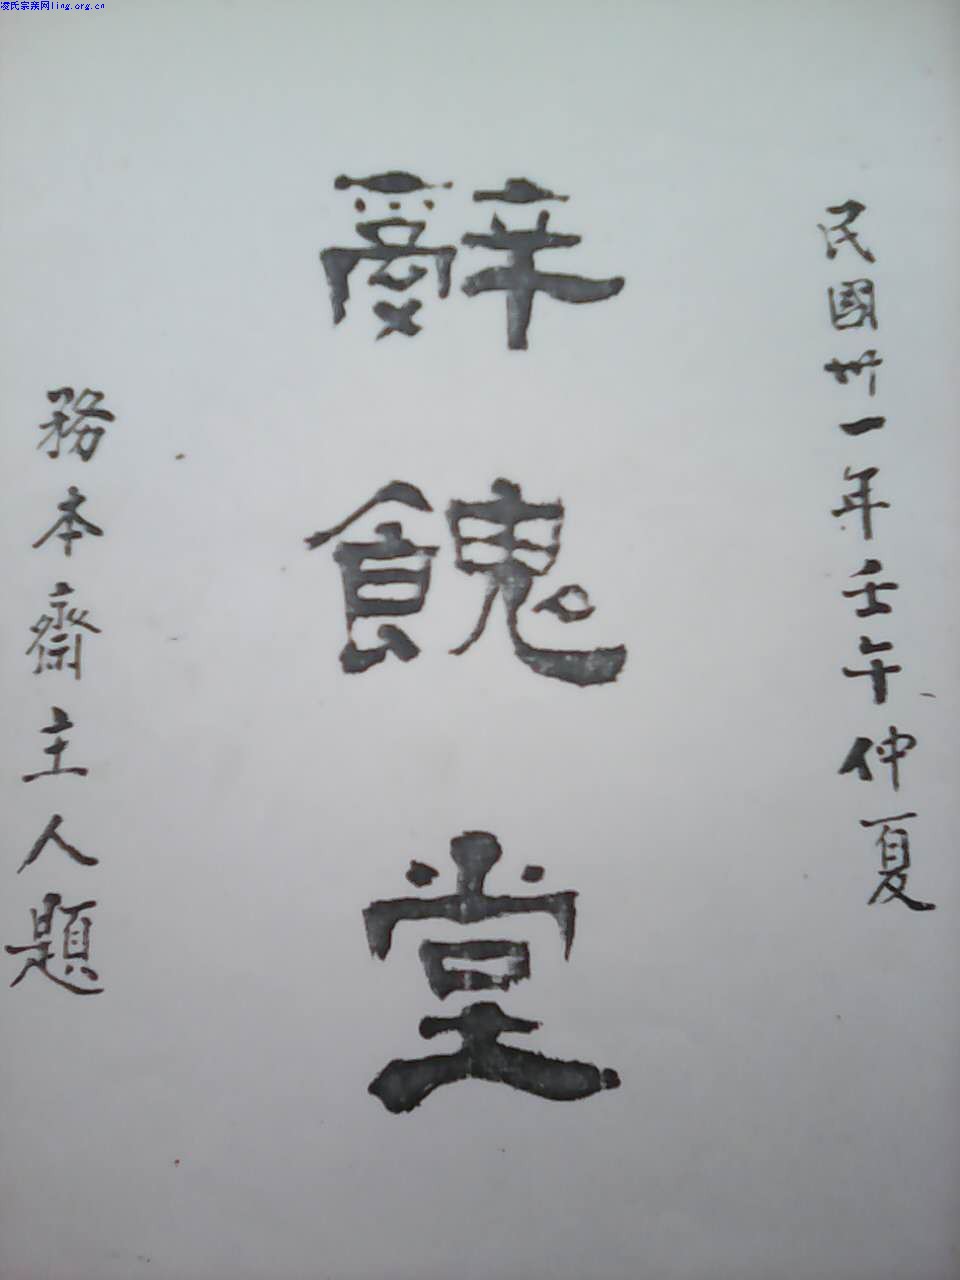 凌氏宗亲网ling.org.cn
民國卅一年壬午仲夏
辭餽堂
務本齋主人題